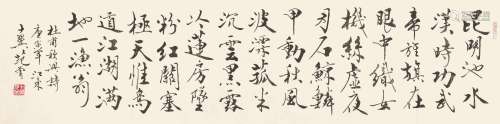 昆明池水
漢時功武
帝旌旗在
眼中織女
機絲虛夜
月石鯨鱗
甲動秋風
波漂菰米
沉雲黑露
冷蓮房墜
粉紅關塞
極天惟鳥
道江湖滿
地一漁翁
杜甫秋興詩
庚寅年江東